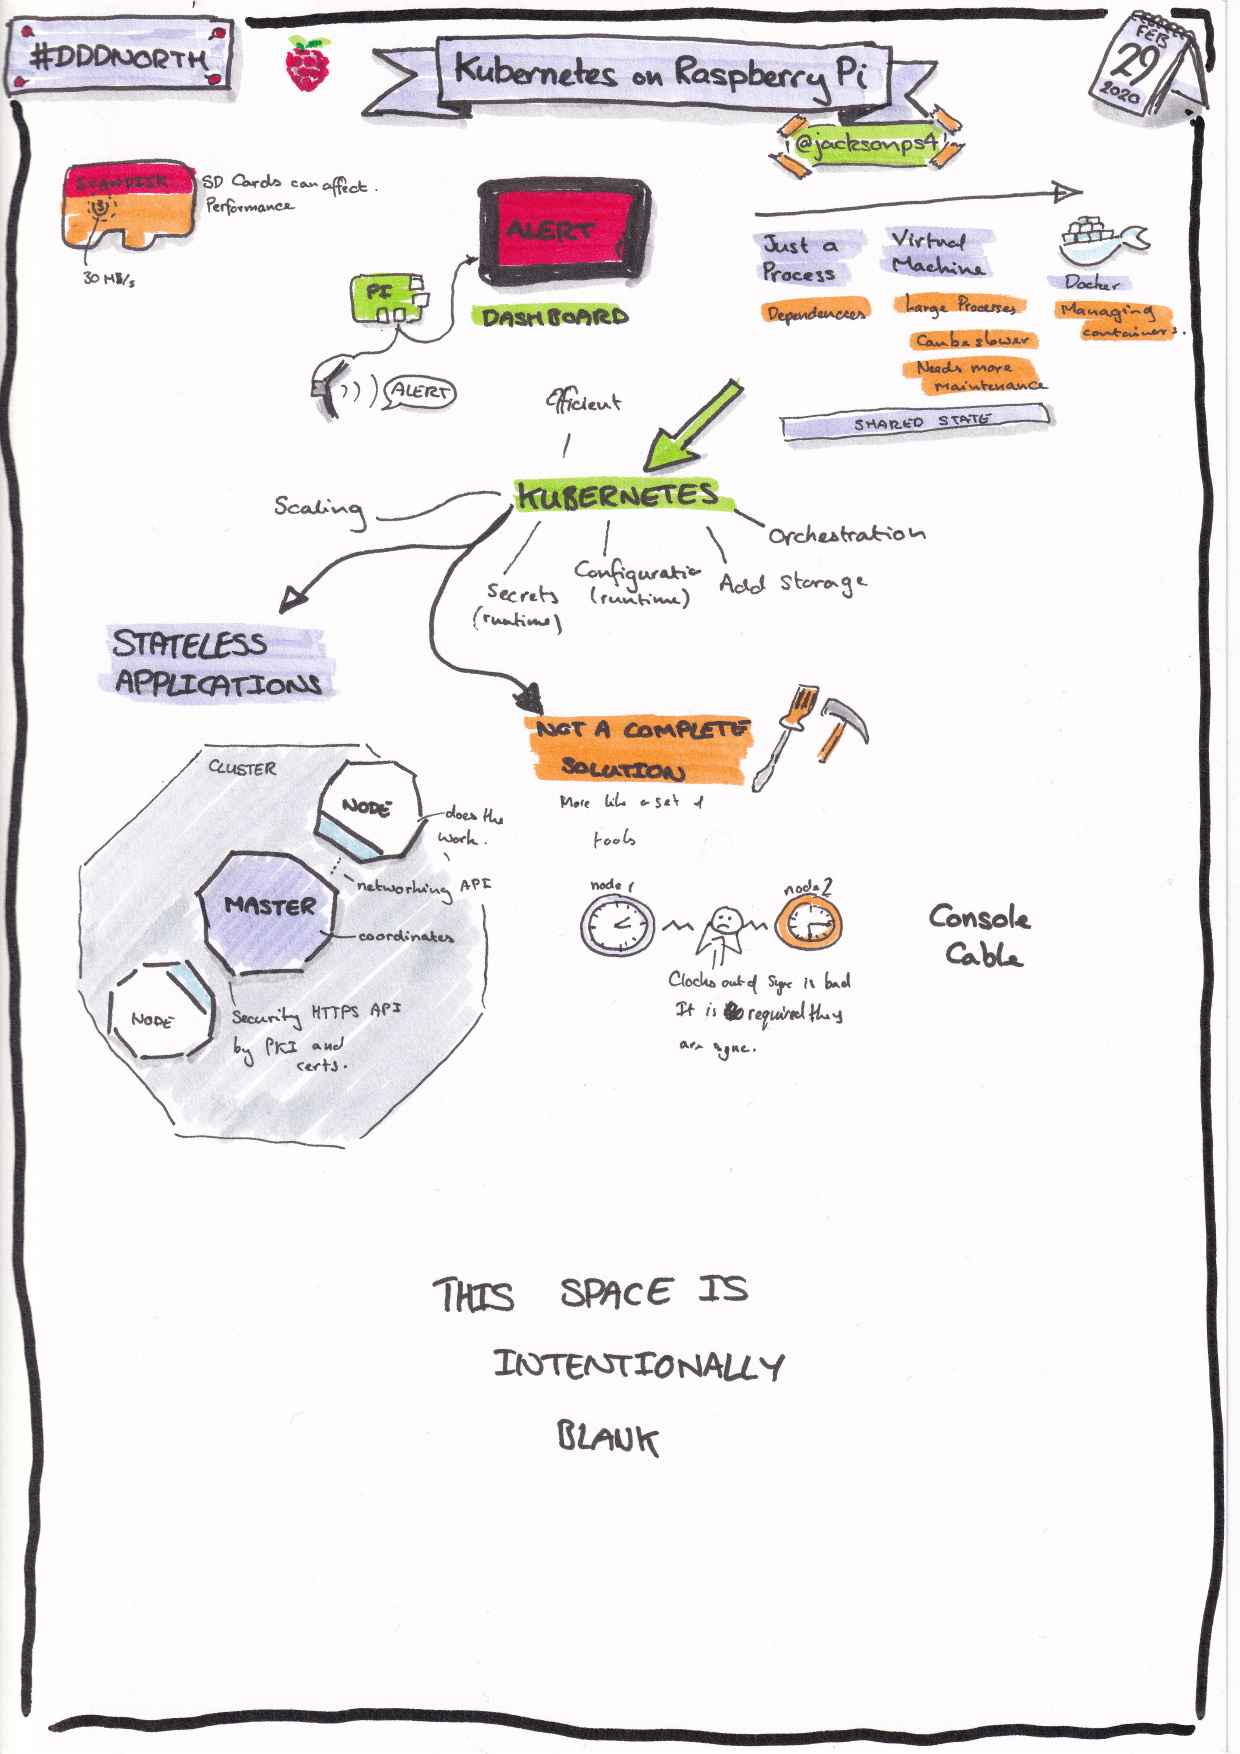 #DDDNORTH
Kubernetes on Raspberry Pi
FEB
29
2020
@jacksonps4
SCANDISK
SD Cards can affect.
Performance
30 MB/s
ALERT
PI
DASHBOARD
ALERT
Just a
Process
Dependencies
Virtual
Machine
Large Processes
Can be slower
Needs more
maintenance
Docker
Managing
containers.
SHARED STATE
Efficient
KUBERNETES
Scaling
Orchestration
Secrets
(runtime)
Configuratio
(runtime)
Add Storage
STATELESS
APPLICATIONS
NOT A COMPLETE
SOLUTION
More like a set of
tools
CLUSTER
NODE
does the
work.
networking API
MASTER
coordinates
NODE
Security HTTPS API
by PKI and
certs.
node 1
node 2
Clocks out of sync is bad
It is required they
are sync.
Console
Cable
THIS SPACE IS
INTENTIONALLY
BLANK